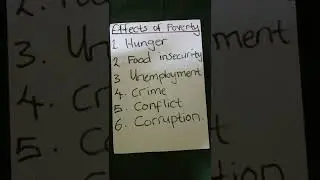 Effects of Poverty
1. Hunger
2. Food insecurity
3 Unemployment
4. Crime
5. Conflict
6. Corruption.